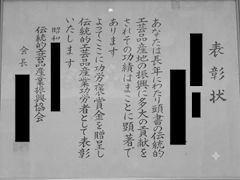 表彰状
あなたは長年にわたり頭書の伝統的
工芸品産地の振興に多大の貢献を
されその功績はまことに顕著で
あります
よってここに功労褒賞金を贈呈し
伝統的工芸品産業功労者として表彰
いたします
昭和
伝統的工芸品産業振興協会
会長